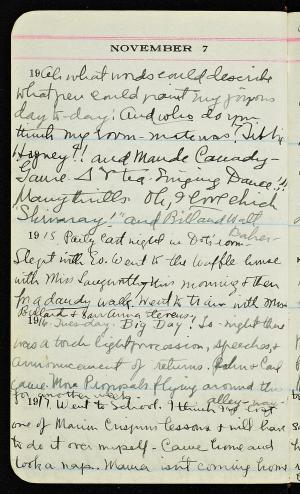 NOVEMBER 7
19 Ah what words could describe
what pen could paint my joyous
day to-day! And who do you
think my room-mate was! Tibbie
Hagney!! and Maude Cassady-
Gave
tea. Singing Dance!!
Many thrills. Oh, I love chick
"Shimmy!" and Bill and Walt
Baker.
1915. Party last night in Dot's room.
Slept with Eo. Went to the Waffle house
with Miss this morning & then
for a dandy walk. Went to train with Miss
Ballard & Stevens.
1916 Tuesday. Big Day! To-night there
was a torch light procession, speeches, &
announcement of returns. John & Carl
came. More Proposals flying around the
for another week. alley-way-
1917 Went to School. I think I'd lost
one of Marion Crispin's lessons & will have
to do it over myself. Came home and
took a nap. Mama isn't coming home